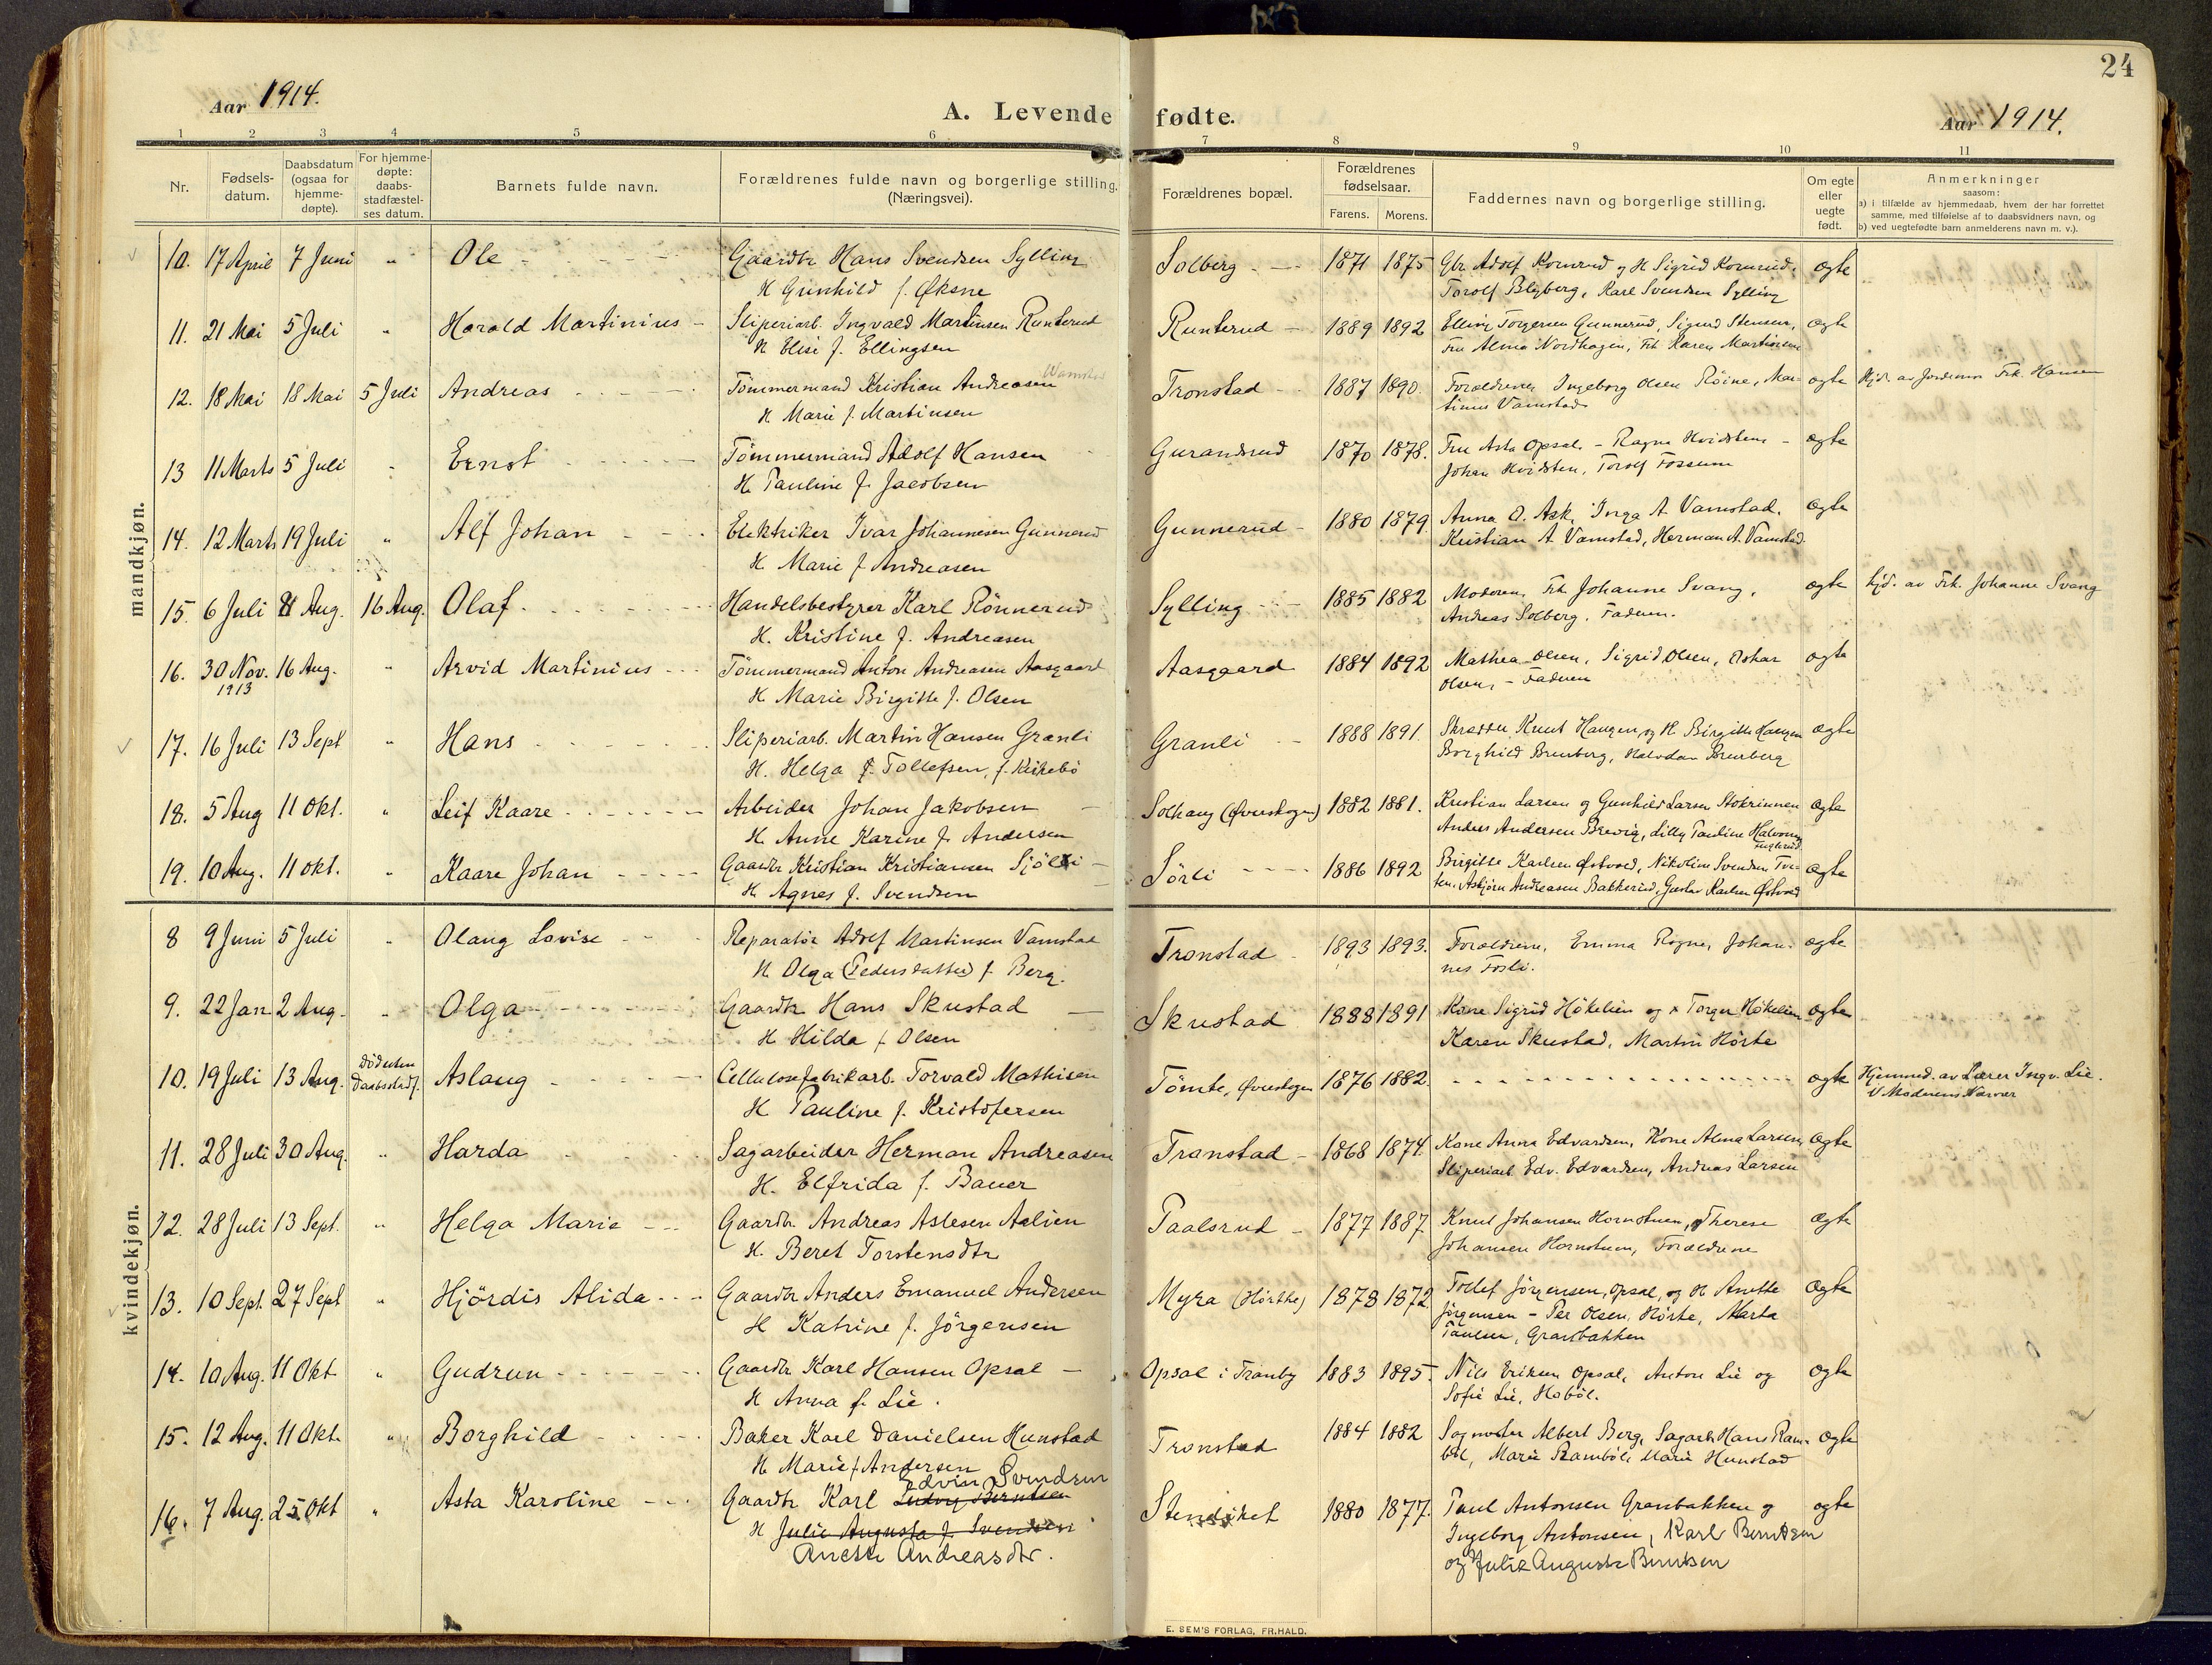 24
Aar 1914.
A. Levende fødte.
Aar 1914.
1 2 3 4 5 6 7 8 9 10 11
Nr.
Fødsels-
datum.
Daabsdatum
(ogsaa for
hjemme-
døpte).
For hjemme-
døpte:
daabs-
stadfæstel-
ses datum.
Barnets fulde navn.
Forældrenes fulde navn og borgerlige stilling.
(Næringsvei).
Forældrenes bopæl.
Forældrenes
fødselsaar.
Farens. Morens.
Faddernes navn og borgerlige stilling.
Om egte
eller
uegte
født.
Anmerkninger
saasom:
a) i tilfælde av hjemmedaab, hvem der har forrettet
samme, med tilføielse af to daabsvidners navn, og
b) ved uegtefødte barn anmelderens navn m. v.).
mandkjøn.
10. 17 April 7 Juni " Ole Gaardbr Hans Svendsen Sylling Solberg 1871 1875 Gbr. Adolf Kornrud og H Sigrid Kornrud, ægte
H Gunhild f. Øksne Torolf Blyberg, Karl Svendsen Sylling
11. 21 Mai 5 Juli " Harald Martinius Sliperiarb. Ingvald Martinsen Runterud Runterud 1889 1892 Elling Torgersen Gunnerud, Sigurd Stensen, ægte
H Elise f. Ellingsen Fru Alma Nordhagen, Frk Karen Martinsen
12. 18 Mai 18 Mai 5 Juli Andreas Tömmermand Kristian Andreasen Tronstad 1887 1890. Forældrene, Ingeborg Olsen Röine, Mar- ægte Hjd. av Jordmor Frk. Hansen
H Marie f. Martinsen tinus Vamstad
13 11 Marts 5 Juli " Ernst Tömmermand Adolf Hansen Gurandsrud 1870 1878. Fru Asta Opsal - Ragna Hvidsten - ægte
H. Pauline f. Jacobsen Johan Hvidsten, Torolf Fossum
14. 12 Marts 19 Juli " Alf Johan Elektriker Ivar Johannesen Gunnerud Gunnerud 1880 1879 Anna O. Ask, Inga A Vamstad, ægte
H. Marie f Andreasen Kristian A. Vamstad, Herman A. Vamstad.
15. 6 Juli 8 Aug. 16 Aug. Olaf Handelsbestyrer Karl Rönnerud Sylling 1885 1882 Moderen, Frk Johanne Svang, ægte hjd. av Frk. Johanne Svang
H. Kristine f. Andreasen Andreas Solberg. Faderen.
16. 30 Nov. 16 Aug. " Arvid Martinius Tömmermand Anton Andreasen Aasgaard Aasgaard 1884 1892 Mathea Olsen, Sigrid Olsen, Oskar ægte
1913 H. Marie Birgitte f. Olsen Olsen, - Faderen
17. 16 Juli 13 Sept " Hans Sliperiarb. Martin Hansen Granli Granli 1888 1891. Skrædder Knut Haugen, og H Birgitte Haugen ægte
H. Helga f. Tollefsen, f. Kirkebö Borghild Brurberg, Halvdan Brurberg
18. 5 Aug 11 Okt. " Leif Kaare Arbeider Johan Jakobsen Solhaug (Øverskogen) 1882 1881. Kristian Larsen og Gunhild Larsen Stokrinnen ægte
H. Anne Karine f. Andersen Anders Andersen Brevig, Lilly Pauline Halvorsen
19. 10 Aug. 11 Okt. " Kaare Johan Gaardbr Kristian Kristiansen Sörli 1886 1892 Birgitte Karlsen Østvold, Nikoline Svendsen Tve- ægte
H. Agnes f. Svendsen ten, Asbjörn Andreasen Bakkerud, Gustav Karlsen Østvold
kvindekjøn.
8 9 Juni 5 Juli " Olaug Lovise Reparatör Adolf Martinsen Vamstad Tronstad 1893 1893. Forældrene, Emma Rogne, Johan- ægte
H Olga (Pedersdatter) f Berg. nes Fosli.
9. 22 Jan 2 Aug. " Olga Gaardbr Hans Skustad Skustad 1888 1891 Kone Sigrid Hökelien og Torger Hökelien ægte
H Hilda f Olsen Karen Skustad, Martin Hörte
10. 19 Juli 13 Aug. Död uten Daabsstadf. Aslaug Cellulosefabrikarb. Torvald Mathisen Tömte, Øverskogen 1876 1882. ægte Hjemmed. av Lærer Ingv. Lie.
H Pauline f. Kristofersen i Moderens Nærvær
11. 28 Juli 30 Aug. " Harda Sagarbeider Herman Andreasen Transtad 1868 1874. Kone Anna Edvardsen, Kone Alma Larsen, ægte
H. Elfrida f. Bauer Sliperiarb Edv. Edvardsen, Andreas Larsen
12. 28 Juli 13 Sept. " Helga Marie Gaardbr. Andreas Aslesen Aslien Paalsrud 1877 1887. Knut Johansen Hornstuen, Therese ægte
H. Beret Torstensdtr Johansen Hornstuen, Forældrene
13. 10 Sept. 27 Sept " Hjördis Alida Gaardbr Anders Emanuel Andersen Myra (Hörthe) 1878 1872 Tollef Jörgensen, Opsal, og H Anette ægte
H Katrine f. Jörgensen Jörgensen - Per Olsen, Hörte, Marta
Paulsen, Granbakken
14. 10 Aug. 11 Okt " Gudrun Gaardbr Karl Hansen Opsal Opsal i Tranby 1883 1895. Nils Eriksen Opsal, Anton Lie og ægte
H Anna f. Lie. Sofie Lie, Hobøl.
15. 12 Aug. 11 Okt. " Borghild Baker Karl Danielsen Hunstad Tronstad 1884 1882 Sagmester Albert Berg, Sagarb Hans Ram- ægte
H. Marie f Andersen böl, Marie Ramböl, Marie Hunstad
Edvin Svendsen
16. 7 Aug. 25 Okt " Asta Karoline Gaardbr Karl Ludvig Berntsen 1880 1877. Paul Antonsen Granbakken og ægte
H Julie Augusta f. Svendsen Ingeborg Antonsen, Karl Berntsen
Anette Andreasdtr. og Julie Augusta Berntsen
E. SEM'S FORLAG, FR.HALD.